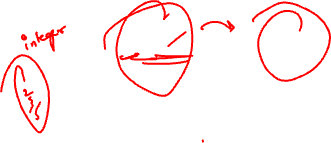 integer
2
3
5